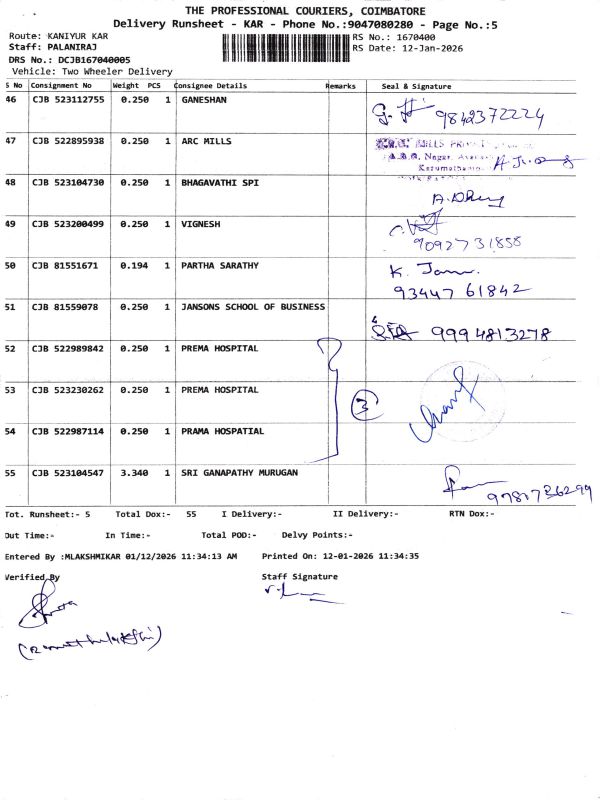 THE PROFESSIONAL COURIERS, COIMBATORE
Delivery Runsheet - KAR - Phone No.:9047080280 - Page No.:5
Route: KANIYUR KAR
RS No.: 1670400
Staff: PALANIRAJ
RS Date: 12-Jan-2026
DRS No.: DCJB167040005
Vehicle: Two Wheeler Delivery
S No Consignment No Weight PCS Consignee Details Remarks Seal & Signature
46 CJB 523112755 0.250 1 GANESHAN
9842372224
47 CJB 522895938 0.250 1 ARC MILLS
MILLS
Nagar,
48 CJB 523104730 0.250 1 BHAGAVATHI SPI
49 CJB 523200499 0.250 1 VIGNESH
9092731858
50 CJB 81551671 0.194 1 PARTHA SARATHY
93447 61842
51 CJB 81559078 0.250 1 JANSONS SCHOOL OF BUSINESS
9994813278
52 CJB 522989842 0.250 1 PREMA HOSPITAL
53 CJB 523230262 0.250 1 PREMA HOSPITAL
3
54 CJB 522987114 0.250 1 PRAMA HOSPATIAL
55 CJB 523104547 3.340 1 SRI GANAPATHY MURUGAN
Tot. Runsheet:- 5 Total Dox:- 55 I Delivery:- II Delivery:- RTN Dox:-
Out Time:- In Time:- Total POD:- Delvy Points:-
Entered By :MLAKSHMIKAR 01/12/2026 11:34:13 AM Printed On: 12-01-2026 11:34:35
Verified By Staff Signature